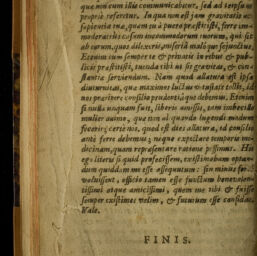 quæ non cum illis communicabitur, sed ad seipsum
proprie referetur. In qua non est jam gravitatis et
sapientia tua, quam tu à puero præstitisti, ferè im-
moderatius casum incommodorum tuorum, qui sit
ab eorum, quos dilexeris, miseria malo que sejunctus.
Etenim cum semper te & privatis in rebus & pu-
blicis præstitisti, tuenda tibi ut sit gravitas, & con-
stantiæ serviendum. Nam quod allatura est ipsa
diuturnitas, quæ maximos luctus vetustate tollit, id
nos præcipere consilio prudentiaq; debemus. Etenim
si nulla unquam fuit, liberis amissis, tam imbecillo
mulier animo, quæ non aliquando lugendi modum
fecerit; certè nos, quod est dies allatura, id consilio
ante ferre debemus; neque expectare temporis me-
dicinam, quam repræsentare ratione possimus. His
ego literis si quid profecissem, existimabam optan-
dum quiddam me esse assequutum: sin minus fortè
valuissent, officio tamen esse functum benevolen-
tissimi atque amicissimi, quem me tibi & fuisse
semper existimes velim, & futurum esse confidas.
Vale.
FINIS.